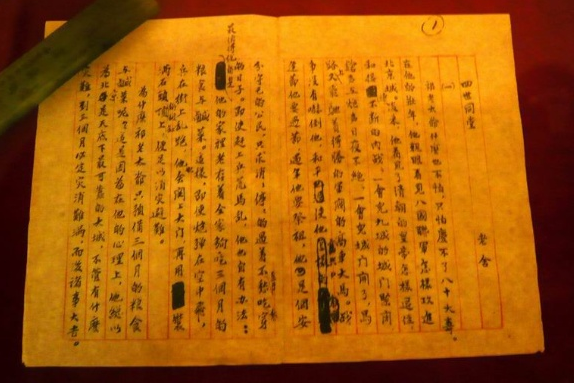 ①
四世同堂
老舍
(一)
祁老太爺什麼也不怕，只怕慶不了八十大壽。
在他的壯年，他親眼看見八國聯軍怎樣攻進
北京城。後來，他看見了清朝的皇帝怎樣退位，
和接不斷的內戰；一會兒九城的城門緊閉，
鎗聲與炮聲日夜不絕；一會兒城門開了，馬
路上又飛馳着得勝的軍閥的高車大馬。戰
爭沒有嚇倒他，和平使他
逢節他要過節，過年他要祭祖，他是個安
分守己的公民，只求消消停停的過着不愁吃穿
的日子。即使趕上兵荒馬亂，他也自有辦法：
最值得說的是
他的家裡老存着全家夠吃三個月的
糧食與鹹菜。這樣，即使炮彈在空中飛，
兵在街上亂跑，他會關上大門，再用裝
滿石頭的破缸頂上，便足以消災避難。
為什麼祁老太爺只預備三個月的糧食
與鹹菜呢？這是因為在他的心理上，他總以
為北平是天底下最可靠的大城，不管有什麼
災難，到三個月必定災消難滿，而後諸事大吉。